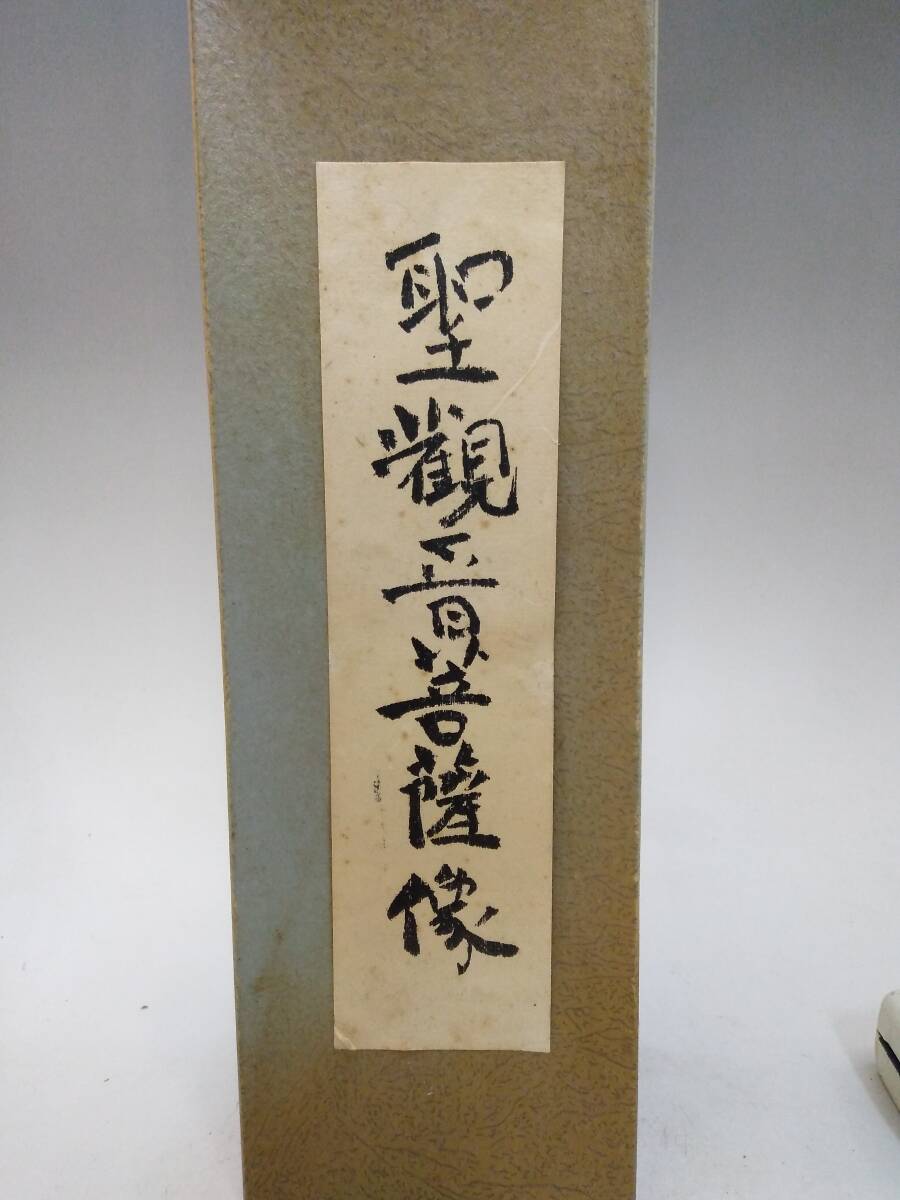 聖觀音菩薩像